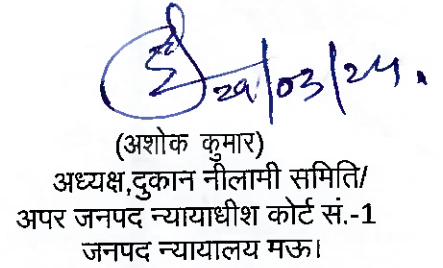 29/03/24.
(अशोक कुमार)
अध्यक्ष,दुकान नीलामी समिति/
अपर जनपद न्यायाधीश कोर्ट सं.-1
जनपद न्यायालय मऊ।